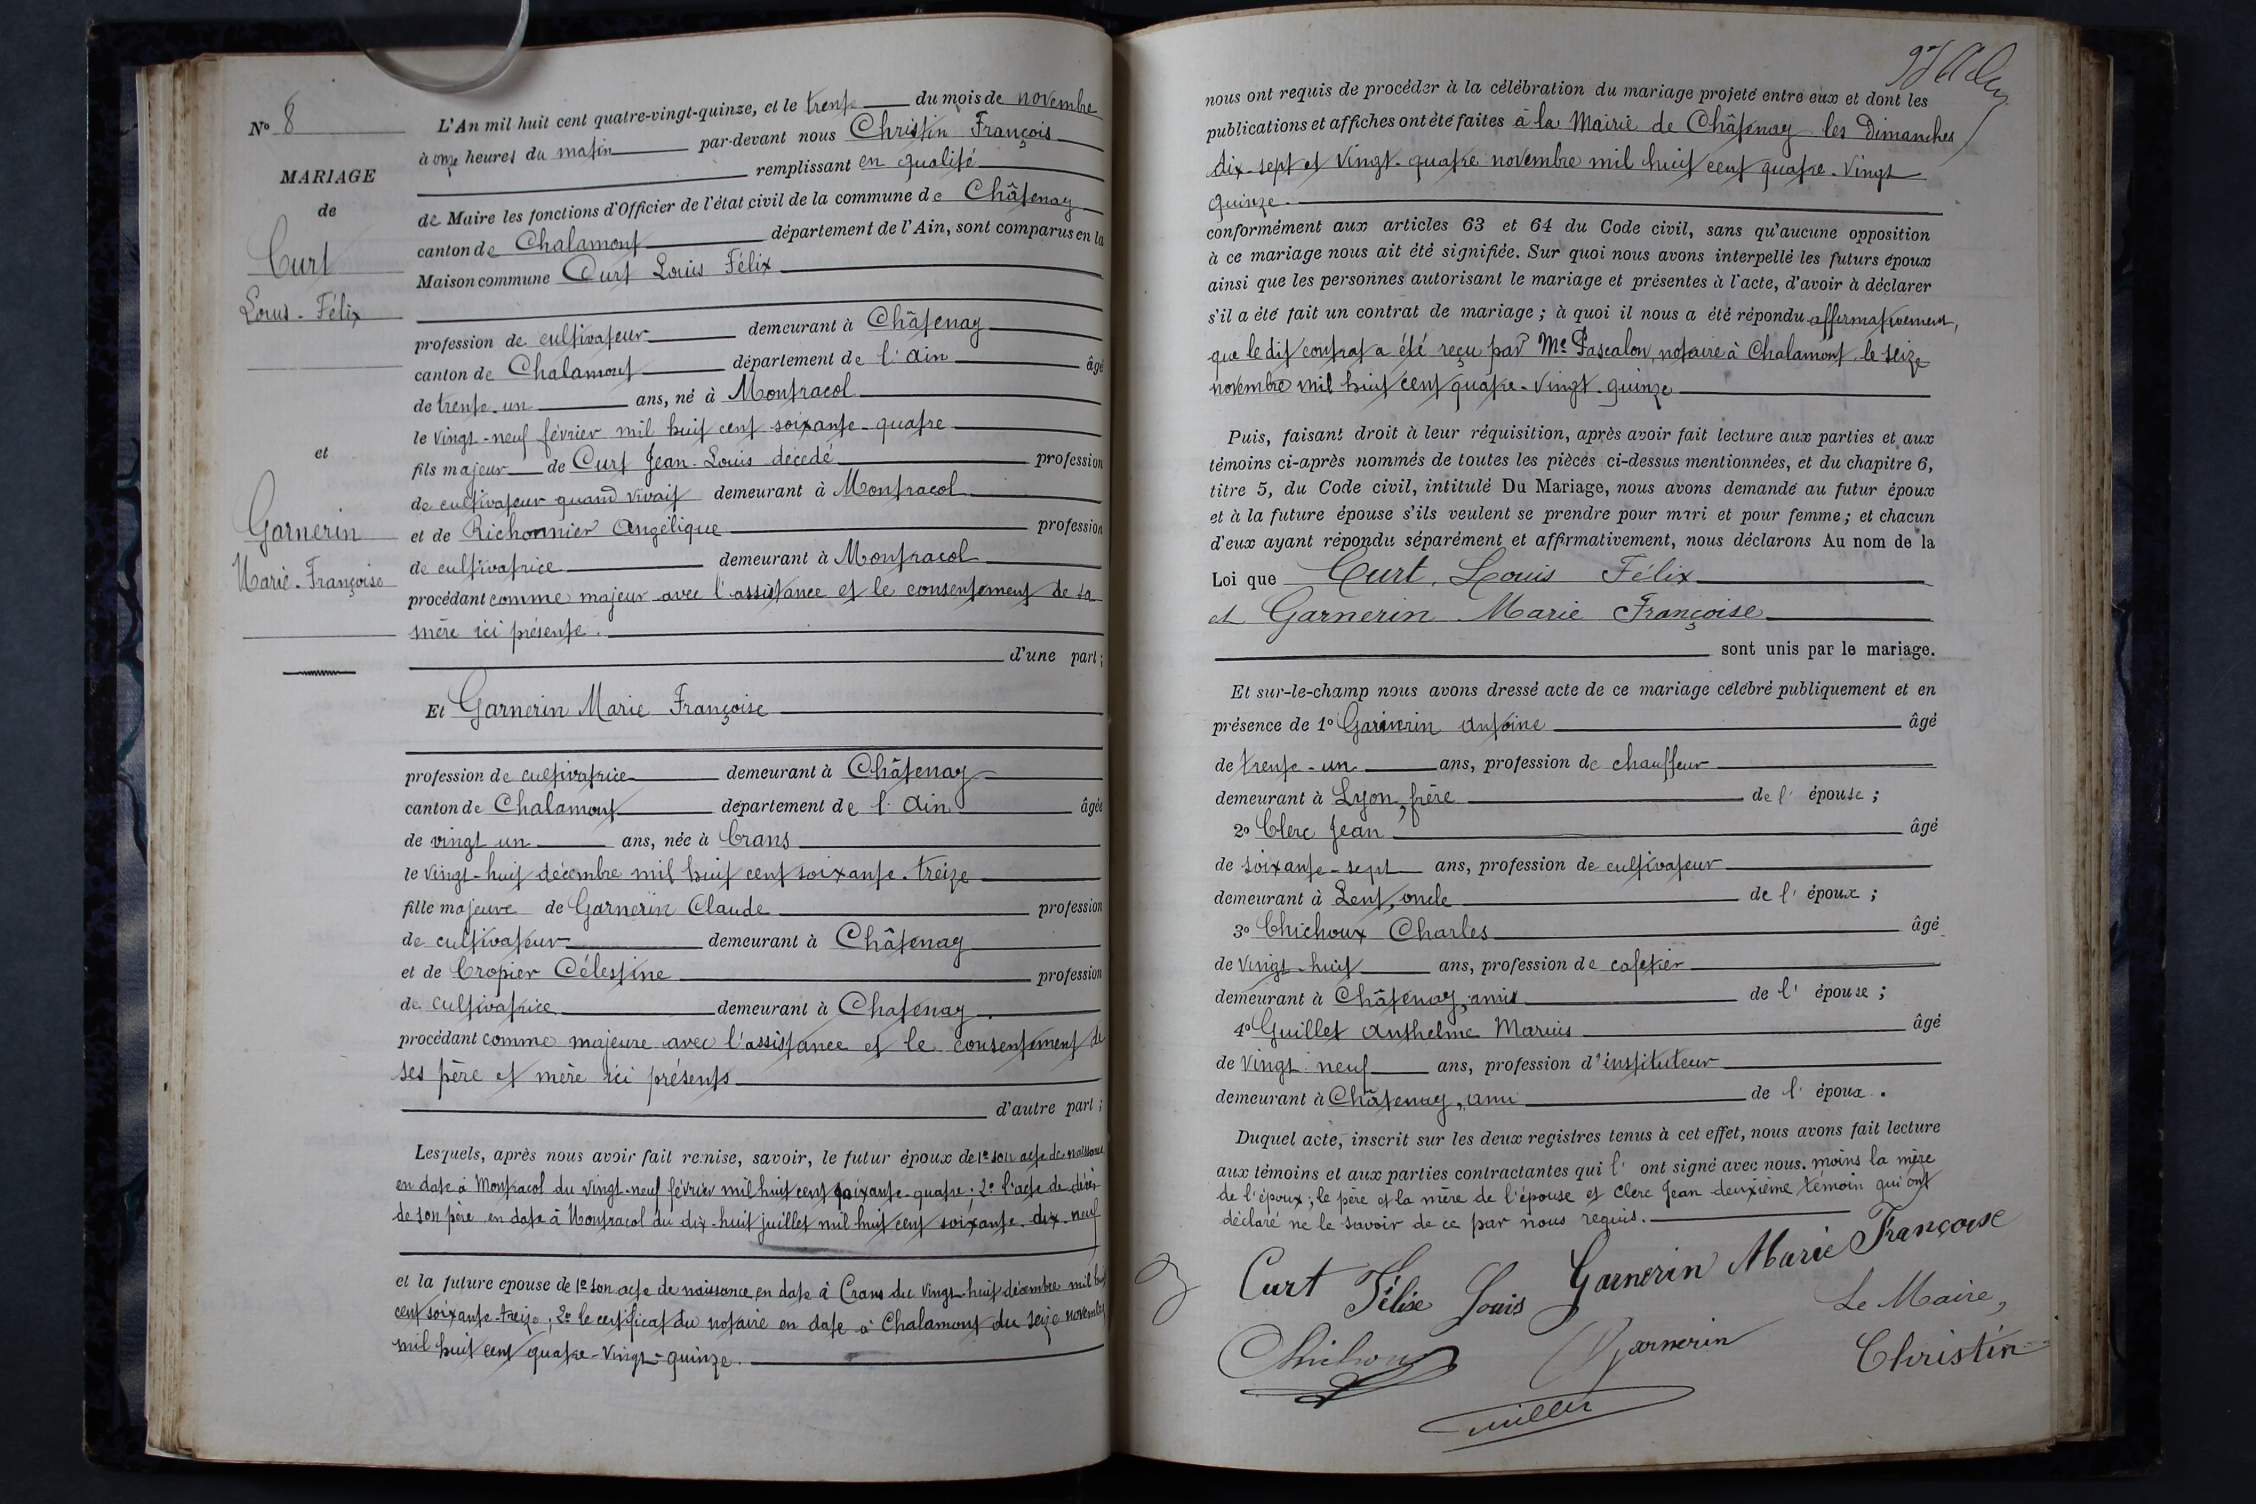 N° 8
MARIAGE
de
Curt
Louis-Félix
et
Garnerin
Marie-Françoise
L'An mil huit cent quatre-vingt-quinze, et le trente du mois de novembre
à onze heures du matin par-devant nous Christin François
remplissant en qualité
de Maire les fonctions d'Officier de l'état civil de la commune de Châtenay
canton de Chalamont département de l'Ain, sont comparus en la
Maison commune Curt Louis Félix
profession de cultivateur demeurant à Châtenay
canton de Chalamont département de l'Ain âgé
de trente-un ans, né à Montracol
le vingt-neuf février mil huit cent soixante-quatre
fils majeur de Curt Jean-Louis décédé profession
de cultivateur quand vivait demeurant à Montracol
et de Richonnier Angélique profession
de cultivatrice demeurant à Montracol
procédant comme majeur avec l'assistance et le consentement de sa
mère ici présente.
d'une part ;
Et Garnerin Marie Françoise
profession de cultivatrice demeurant à Châtenay
canton de Chalamont département de l'Ain âgée
de vingt un ans, née à Crans
le vingt-huit décembre mil huit cent soixante-treize
fille majeure de Garnerin Claude profession
de cultivateur demeurant à Châtenay
et de Cropier Célestine profession
de cultivatrice demeurant à Chatenay.
procédant comme majeure avec l'assistance et le consentement de
ses père et mère ici présents
d'autre part ;
Lesquels, après nous avoir fait remise, savoir, le futur époux de 1° son acte de naissance
en date à Montracol du vingt-neuf février mil huit cent soixante-quatre ; 2° l'acte de décès
de son père en date à Montracol du dix-huit juillet mil huit cent soixante-dix-neuf
et la future épouse de 1° son acte de naissance en date à Crans du vingt-huit décembre mil huit
cent soixante-treize ; 2° le certificat du notaire en date à Chalamont du seize novembre
mil huit cent quatre-vingt-quinze.
nous ont requis de procéder à la célébration du mariage projeté entre eux et dont les
publications et affiches ont été faites à la Mairie de Châtenay les Dimanches
dix-sept et vingt-quatre novembre mil huit cent quatre-vingt
quinze.
conformément aux articles 63 et 64 du Code civil, sans qu'aucune opposition
à ce mariage nous ait été signifiée. Sur quoi nous avons interpellé les futurs époux
ainsi que les personnes autorisant le mariage et présentes à l'acte, d'avoir à déclarer
s'il a été fait un contrat de mariage ; à quoi il nous a été répondu affirmativement,
que le dit contrat a été reçu par Me Pascalon, notaire à Chalamont le seize
novembre mil huit cent quatre-vingt-quinze
Puis, faisant droit à leur réquisition, après avoir fait lecture aux parties et aux
témoins ci-après nommés de toutes les pièces ci-dessus mentionnées, et du chapitre 6,
titre 5, du Code civil, intitulé Du Mariage, nous avons demandé au futur époux
et à la future épouse s'ils veulent se prendre pour mari et pour femme ; et chacun
d'eux ayant répondu séparément et affirmativement, nous déclarons Au nom de la
Loi que Curt Louis Félix
et Garnerin Marie Françoise
sont unis par le mariage.
Et sur-le-champ nous avons dressé acte de ce mariage célébré publiquement et en
présence de 1° Garnerin Antoine âgé
de trente-un ans, profession de chauffeur
demeurant à Lyon, frère de l'épouse ;
2° Clerc Jean âgé
de soixante-sept ans, profession de cultivateur
demeurant à Lent, oncle de l'époux ;
3° Chichoux Charles âgé
de vingt-huit ans, profession de cafetier
demeurant à Châtenay, ami de l'épouse ;
4° Guillet Anthelme Marius âgé
de vingt-neuf ans, profession d'instituteur
demeurant à Châtenay, ami de l'époux.
Duquel acte, inscrit sur les deux registres tenus à cet effet, nous avons fait lecture
aux témoins et aux parties contractantes qui l'ont signé avec nous. moins la mère
de l'époux ; le père et la mère de l'épouse et Clerc Jean deuxième témoin qui ont
déclaré ne le savoir de ce par nous requis.
Curt Félix Louis Garnerin Marie Françoise
Le Maire,
Chichoux Garnerin Christin
Guillet